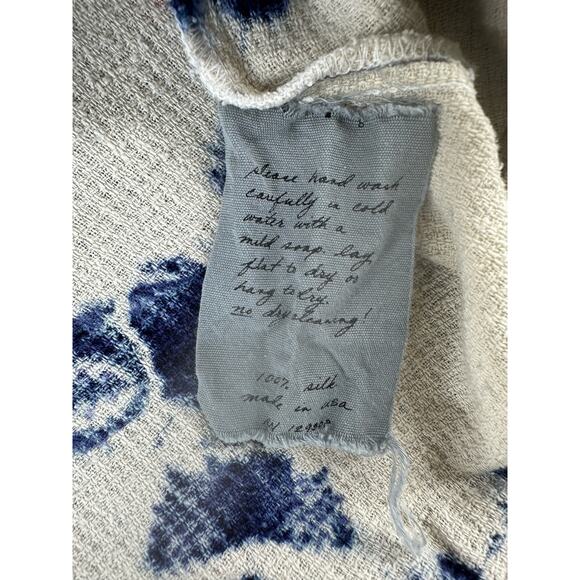 please hand wash
carefully in cold
water with a
mild soap. lay
flat to dry or
hang to dry.
no drycleaning!
100% silk
made in usa